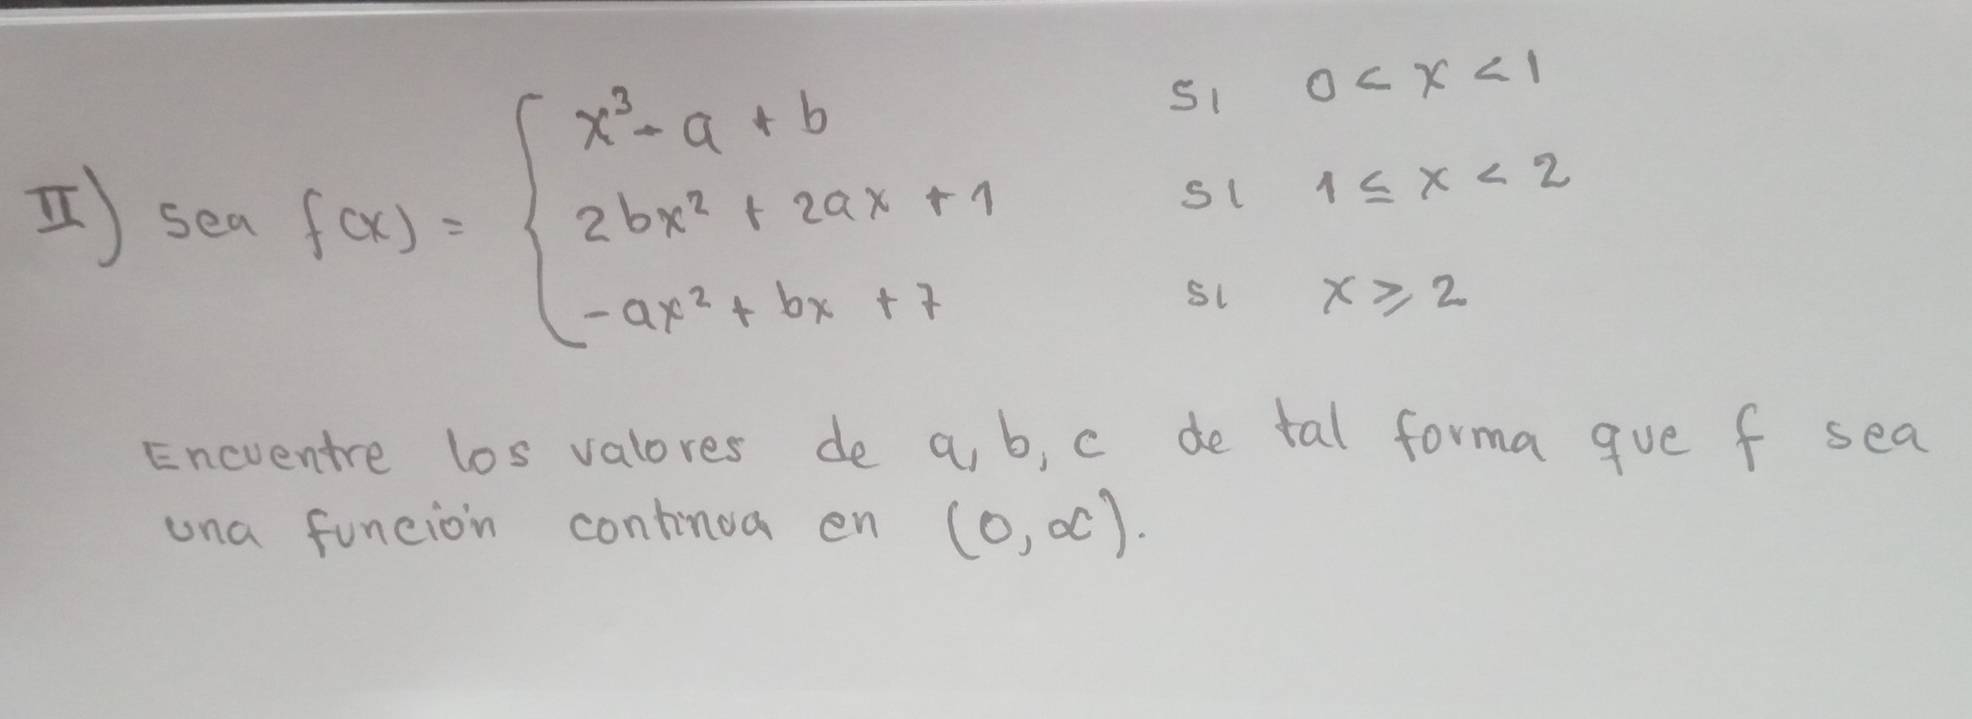 x³ - a + b si 0 < x < 1
II) sea f(x) = { 2bx² + 2ax + 1 si 1 ≤ x < 2
-ax² + bx + 7 si x ≥ 2
Encuentre los valores de a, b, c de tal forma que f sea
una función continua en (0, ∞).